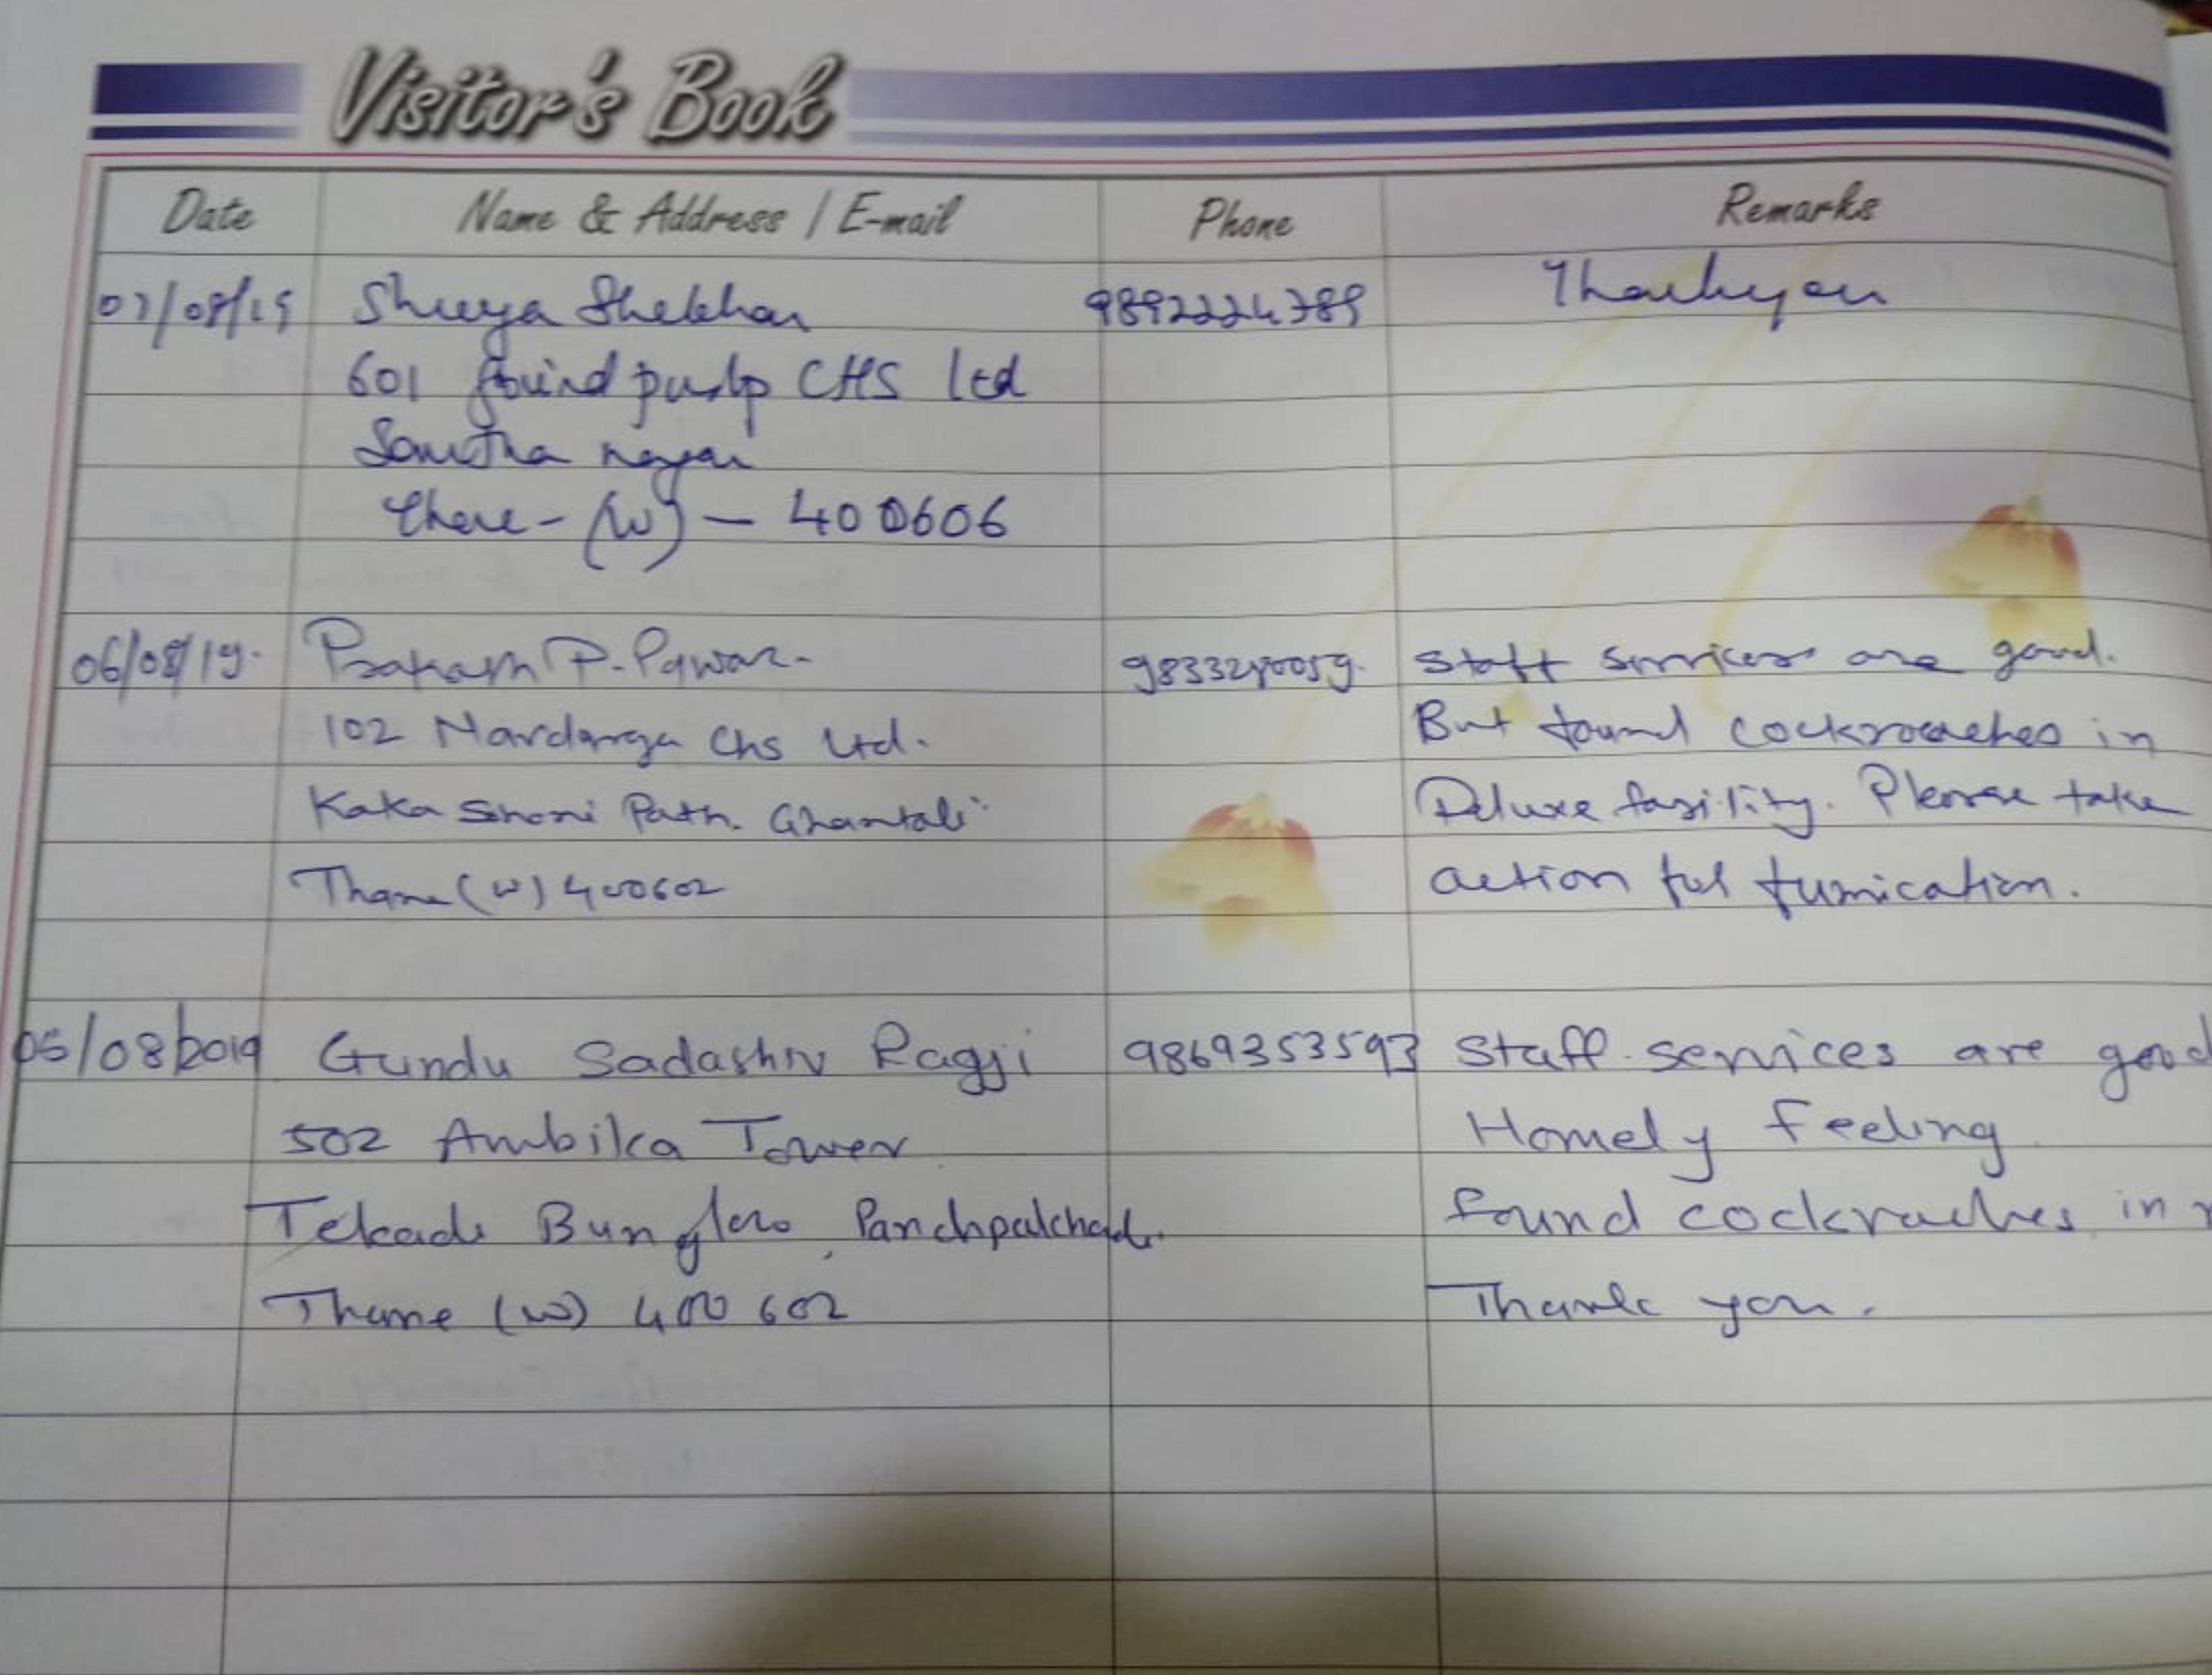 Visitor's Book
Date Name & Address / E-mail Phone Remarks
/08/19 Shreya Shekhar 9892224789 Thankyou
601 CHS Ltd
nagar
(W) - 400606
06/08/19. Prakash P. Pawar 98332 Staff services are good.
102 Chs Ltd. But found cockroaches in
Kaka Path. Ghantali Deluxe fasility. Please take
Thane (W) 400602 action for fumication.
05/08/2019 Gundu Sadashiv Ragji 9869353593 Staff services are good
502 Ambika Tower Homely Feeling
Bunglow, found cockraches in
Thane (W) 400 602 Thank you.